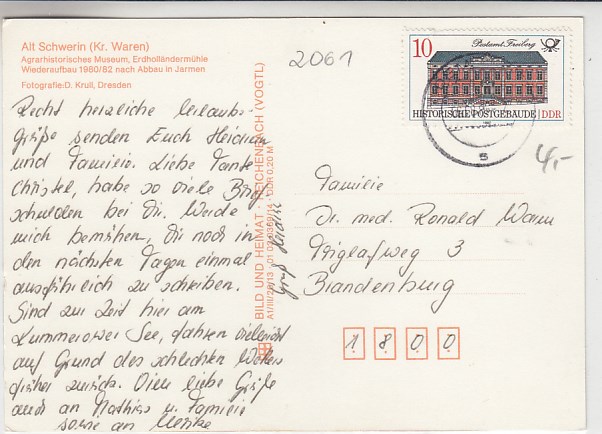 Alt Schwerin (Kr. Waren)
Agrarhistorisches Museum, Erdholländermühle
Wiederaufbau 1980/82 nach Abbau in Jarmen
Fotografie: D. Krull, Dresden
2061
10
Postamt Freiberg
HISTORISCHE POSTGEBÄUDE DDR
4,-
Recht herzliche Urlaubs-
grüße senden Euch Heidrun
und Familie. Liebe Tante
Christel, habe so viele Brief-
schulden bei Dir. Werde
mich bemühen, Dir noch in
den nächsten Tagen einmal
ausführlich zu schreiben.
Sind zur Zeit hier am
Kummerower See, fahren vielleicht
auf Grund des schlechten Wetters
früher zurück. Viele liebe Grüße
auch an Mathias u. Familie
sowie an
BILD UND HEIMAT REICHENBACH (VOGTL)
A1/III/26/13 DDR 0,20 M
Gruß
Familie
Dr. med. Ronald
3
Brandenburg
1800